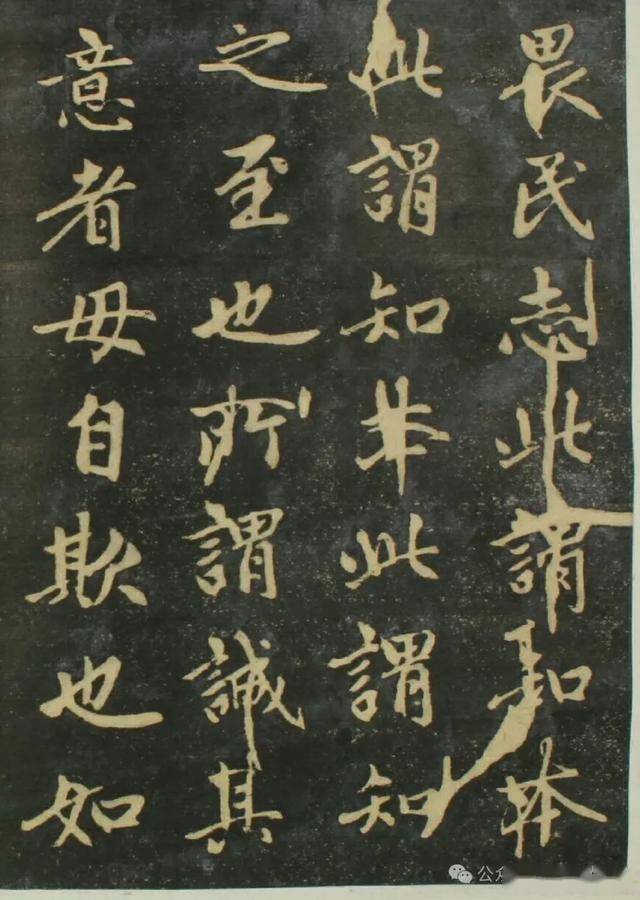 畏民志此謂知本
此謂知本此謂知
之至也所謂誠其
意者毋自欺也如
公众